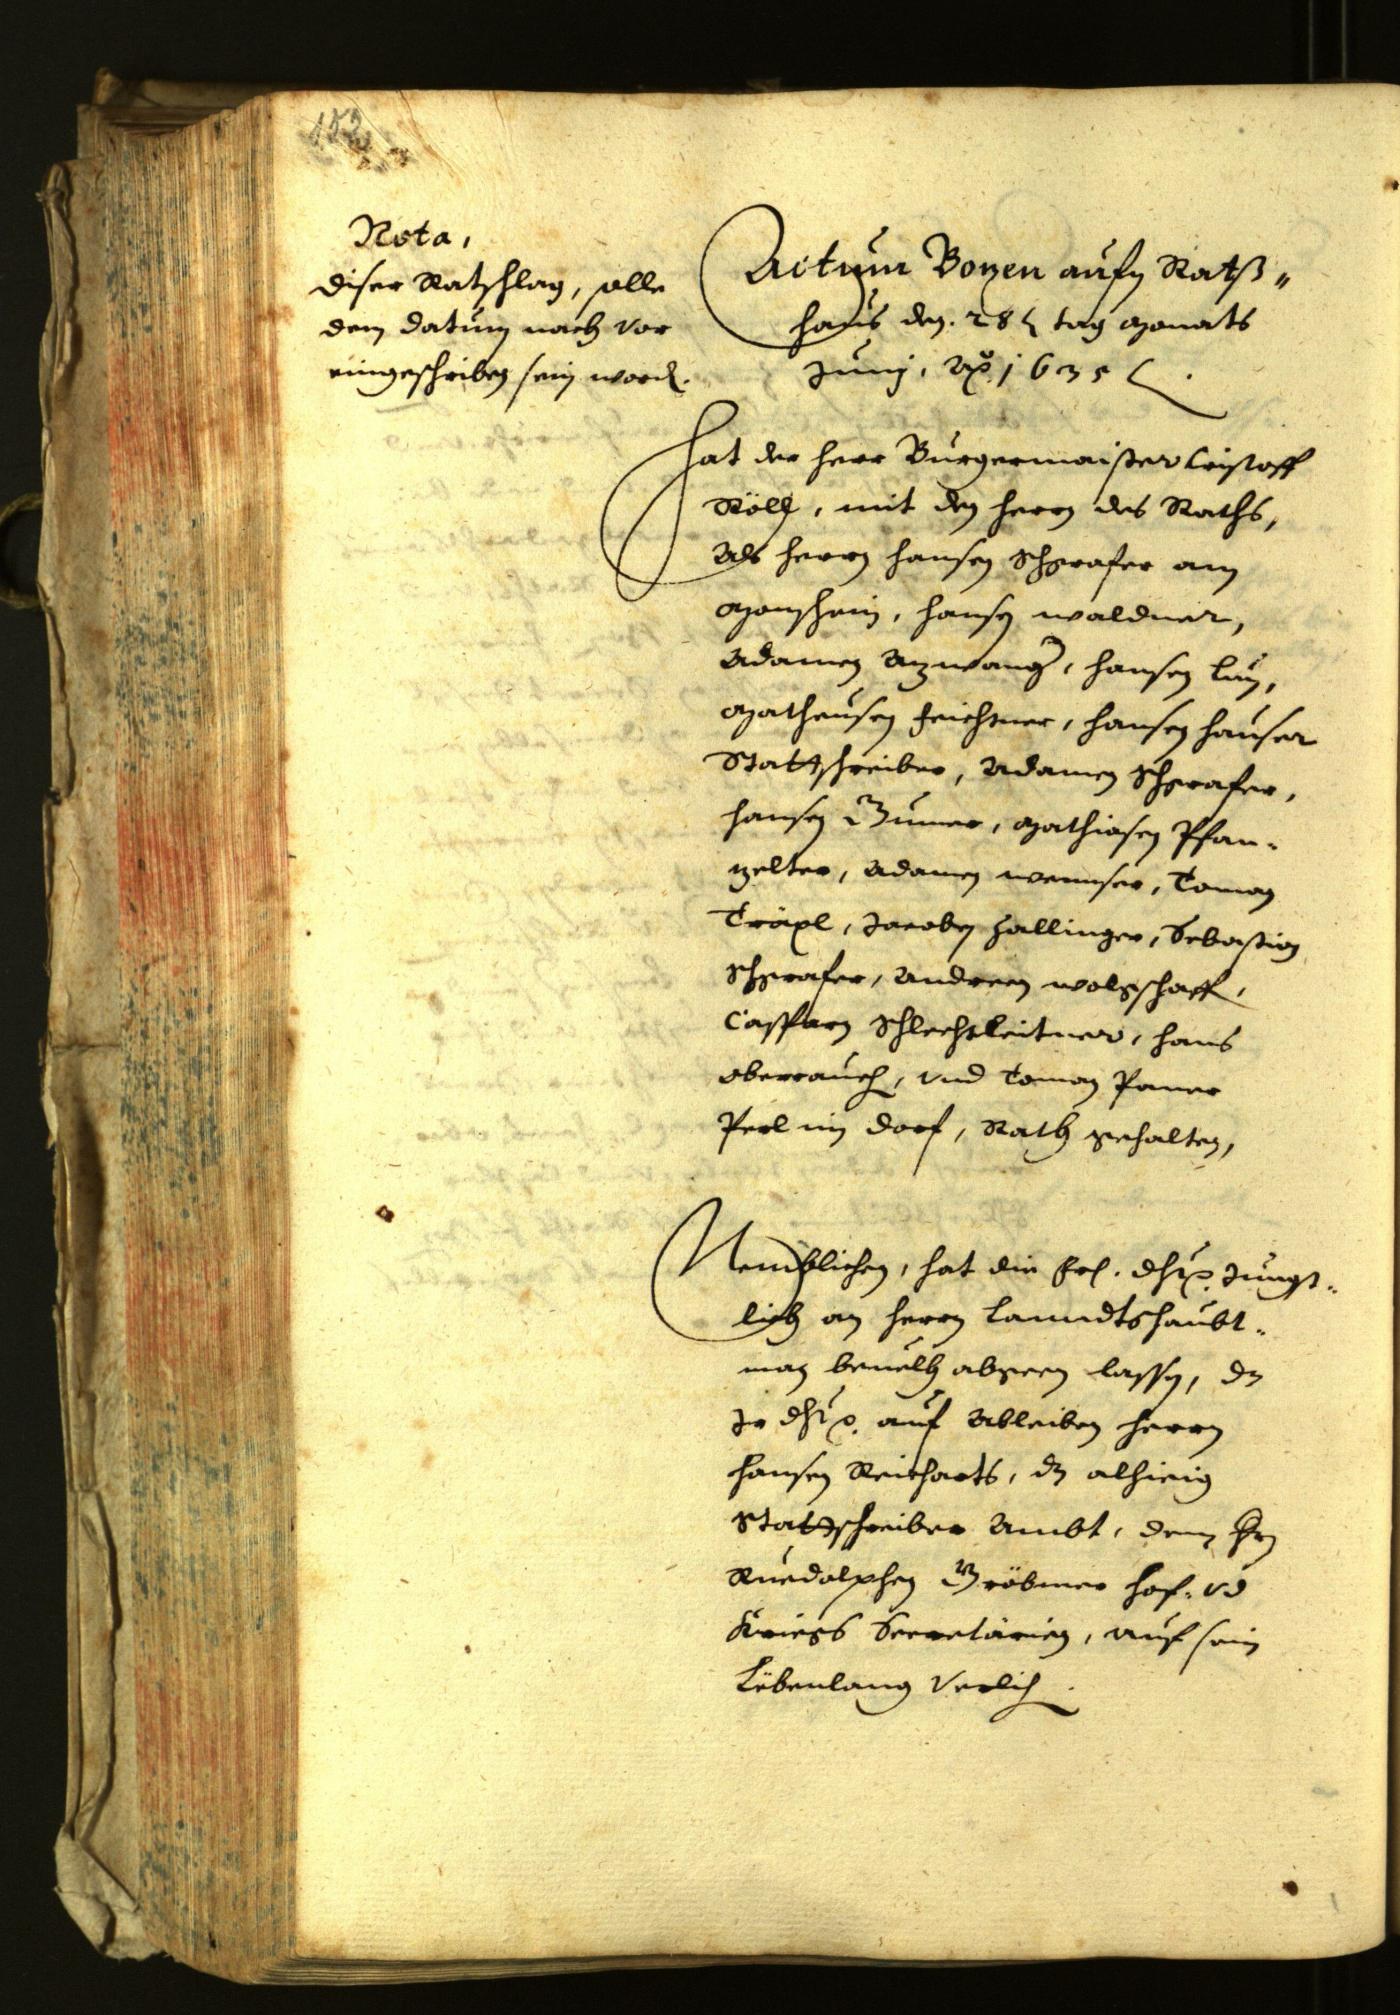 153
Nota,
diser Ratschlag, solle
dem datum nach vor
eingeschriben sein word.
Actum Bozen aufn Ratß„
haus den. 28 tag Monats
Junj, Ao 1635.
Hat der herr Burgermaister Cristoff
Röll, mit den herrn des Raths,
Als herrn hansen Schgrafer am
hansen waldner,
Adamen Azwang, hansen Lun,
Matheusen Feichtner, hansen hauser
Stattschreiber, Adamen Schgrafer,
hansen Gumer, Mathiasen Pfan„
zelter, Adamen wennser, Toman
Träxl, Jacoben Hallinger, Sebastian
Schgrafer, Andreen wolgschafft,
Casparn Schlechtleitner, hans
oberrauch, vnd Toman
im dorf, Rath gehalten,
Nemblichen, hat die Frl. dht. Jungst„
lich an herrn Lanndtshaubt„
man beuelch abgeen lassen, dz
Ir dht. auf Ableiben herrn
hansen Reicharts, dz alhieig
Stattschreiber Ambt, dem hrn
Ruedolphen Gröbmer hof- vnd
Kriegs Secretarien, auf sein
Lebenlang verlich.